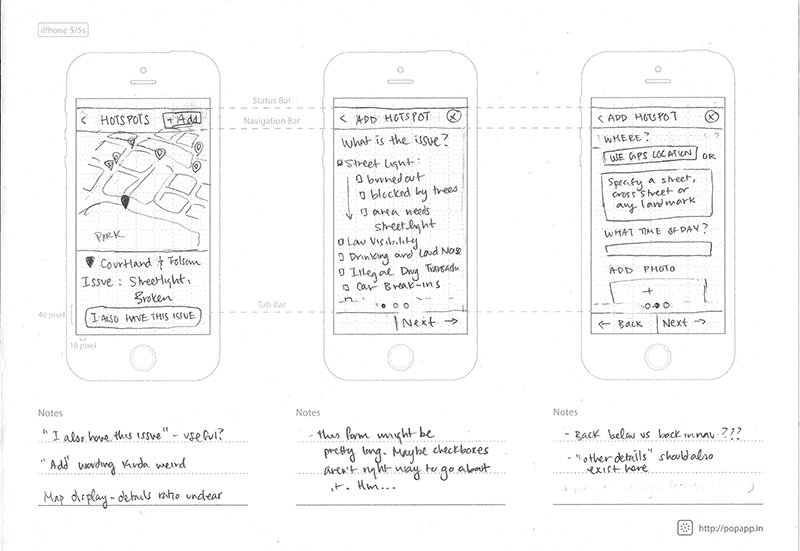 iPhone 5/5s
Status Bar
Navigation Bar
Tab Bar
40 pixel
10 pixel
< HOTSPOTS + Add
PARK
Courtland & Folsom
Issue : Streetlight,
Broken
I ALSO HAVE THIS ISSUE
< ADD HOTSPOT X
What is the issue?
Street Light:
burned out
blocked by trees
area needs
streetlight
Low Visibility
Drinking and Loud Noise
Illegal Drug Transactn
Car Break-ins
Next →
< ADD HOTSPOT X
WHERE?
USE GPS LOCATION OR
Specify a street,
cross street or
any landmark
WHAT TIME OF DAY?
ADD PHOTO
+
← Back Next →
Notes
"I also have this issue" - useful?
"Add" wording kinda weird
Map display - details ratio unclear
Notes
- this form might be
pretty long. Maybe checkboxes
aren't right way to go about
it. Hm...
Notes
- Back below vs back in nav ???
- "other details" should also
exist here
http://popapp.in